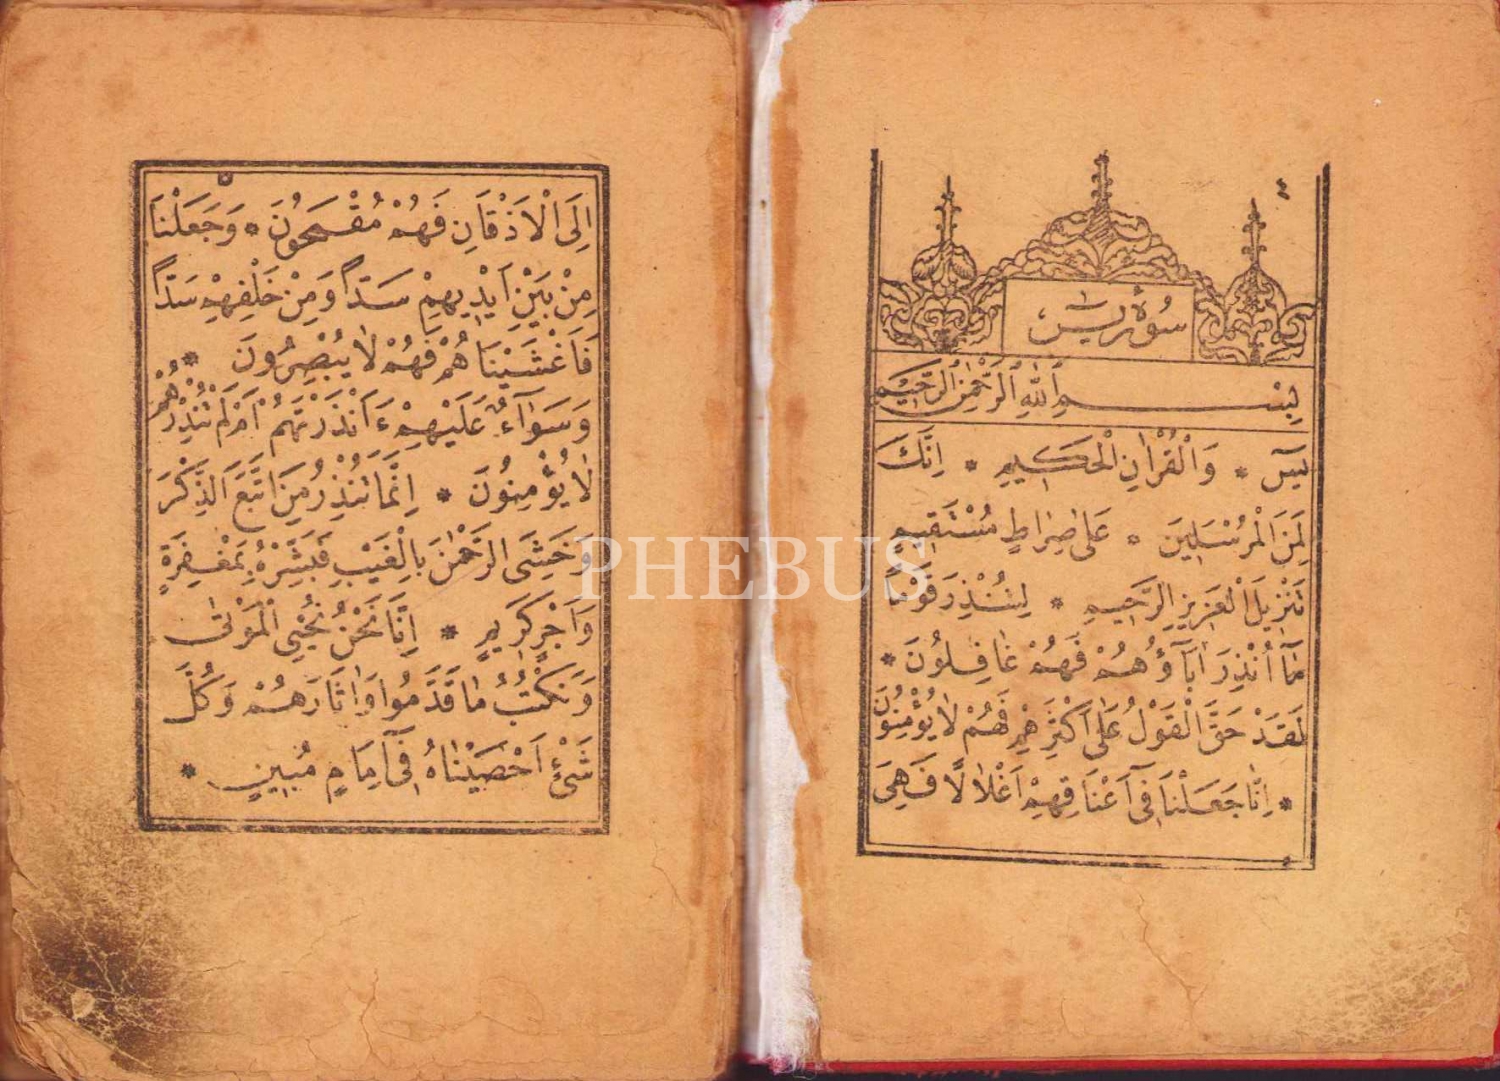 ٤
سورة يس
بسم الله الرحمن الرحيم
يٓس * وَالْقُرْاٰنِ الْحَكٖيمِ * اِنَّكَ
لَمِنَ الْمُرْسَلٖينَ * عَلٰى صِرَاطٍ مُسْتَقٖيمٍ
تَنْزٖيلَ الْعَزٖيزِ الرَّحٖيمِ * لِتُنْذِرَ قَوْمًا
مَٓا اُنْذِرَ اٰبَٓاؤُهُمْ فَهُمْ غَافِلُونَ *
لَقَدْ حَقَّ الْقَوْلُ عَلٰٓى اَكْثَرِهِمْ فَهُمْ لَا يُؤْمِنُونَ
* اِنَّا جَعَلْنَا فٖٓى اَعْنَاقِهِمْ اَغْلَالًا فَهِىَ
٥
اِلَى الْاَذْقَانِ فَهُمْ مُقْمَحُونَ * وَجَعَلْنَا
مِنْ بَيْنِ اَيْدٖيهِمْ سَدًّا وَمِنْ خَلْفِهِمْ سَدًّا
فَاَغْشَيْنَاهُمْ فَهُمْ لَا يُبْصِرُونَ *
وَسَوَٓاءٌ عَلَيْهِمْ ءَاَنْذَرْتَهُمْ اَمْ لَمْ تُنْذِرْهُمْ
لَا يُؤْمِنُونَ * اِنَّمَا تُنْذِرُ مَنِ اتَّبَعَ الذِّكْرَ
وَخَشِىَ الرَّحْمٰنَ بِالْغَيْبِ فَبَشِّرْهُ بِمَغْفِرَةٍ
وَاَجْرٍ كَرٖيمٍ * اِنَّا نَحْنُ نُحْيِى الْمَوْتٰى
وَنَكْتُبُ مَا قَدَّمُوا وَاٰثَارَهُمْ وَكُلَّ
شَىْءٍ اَحْصَيْنَاهُ فٖٓى اِمَامٍ مُبٖينٍ *
PHEBUS